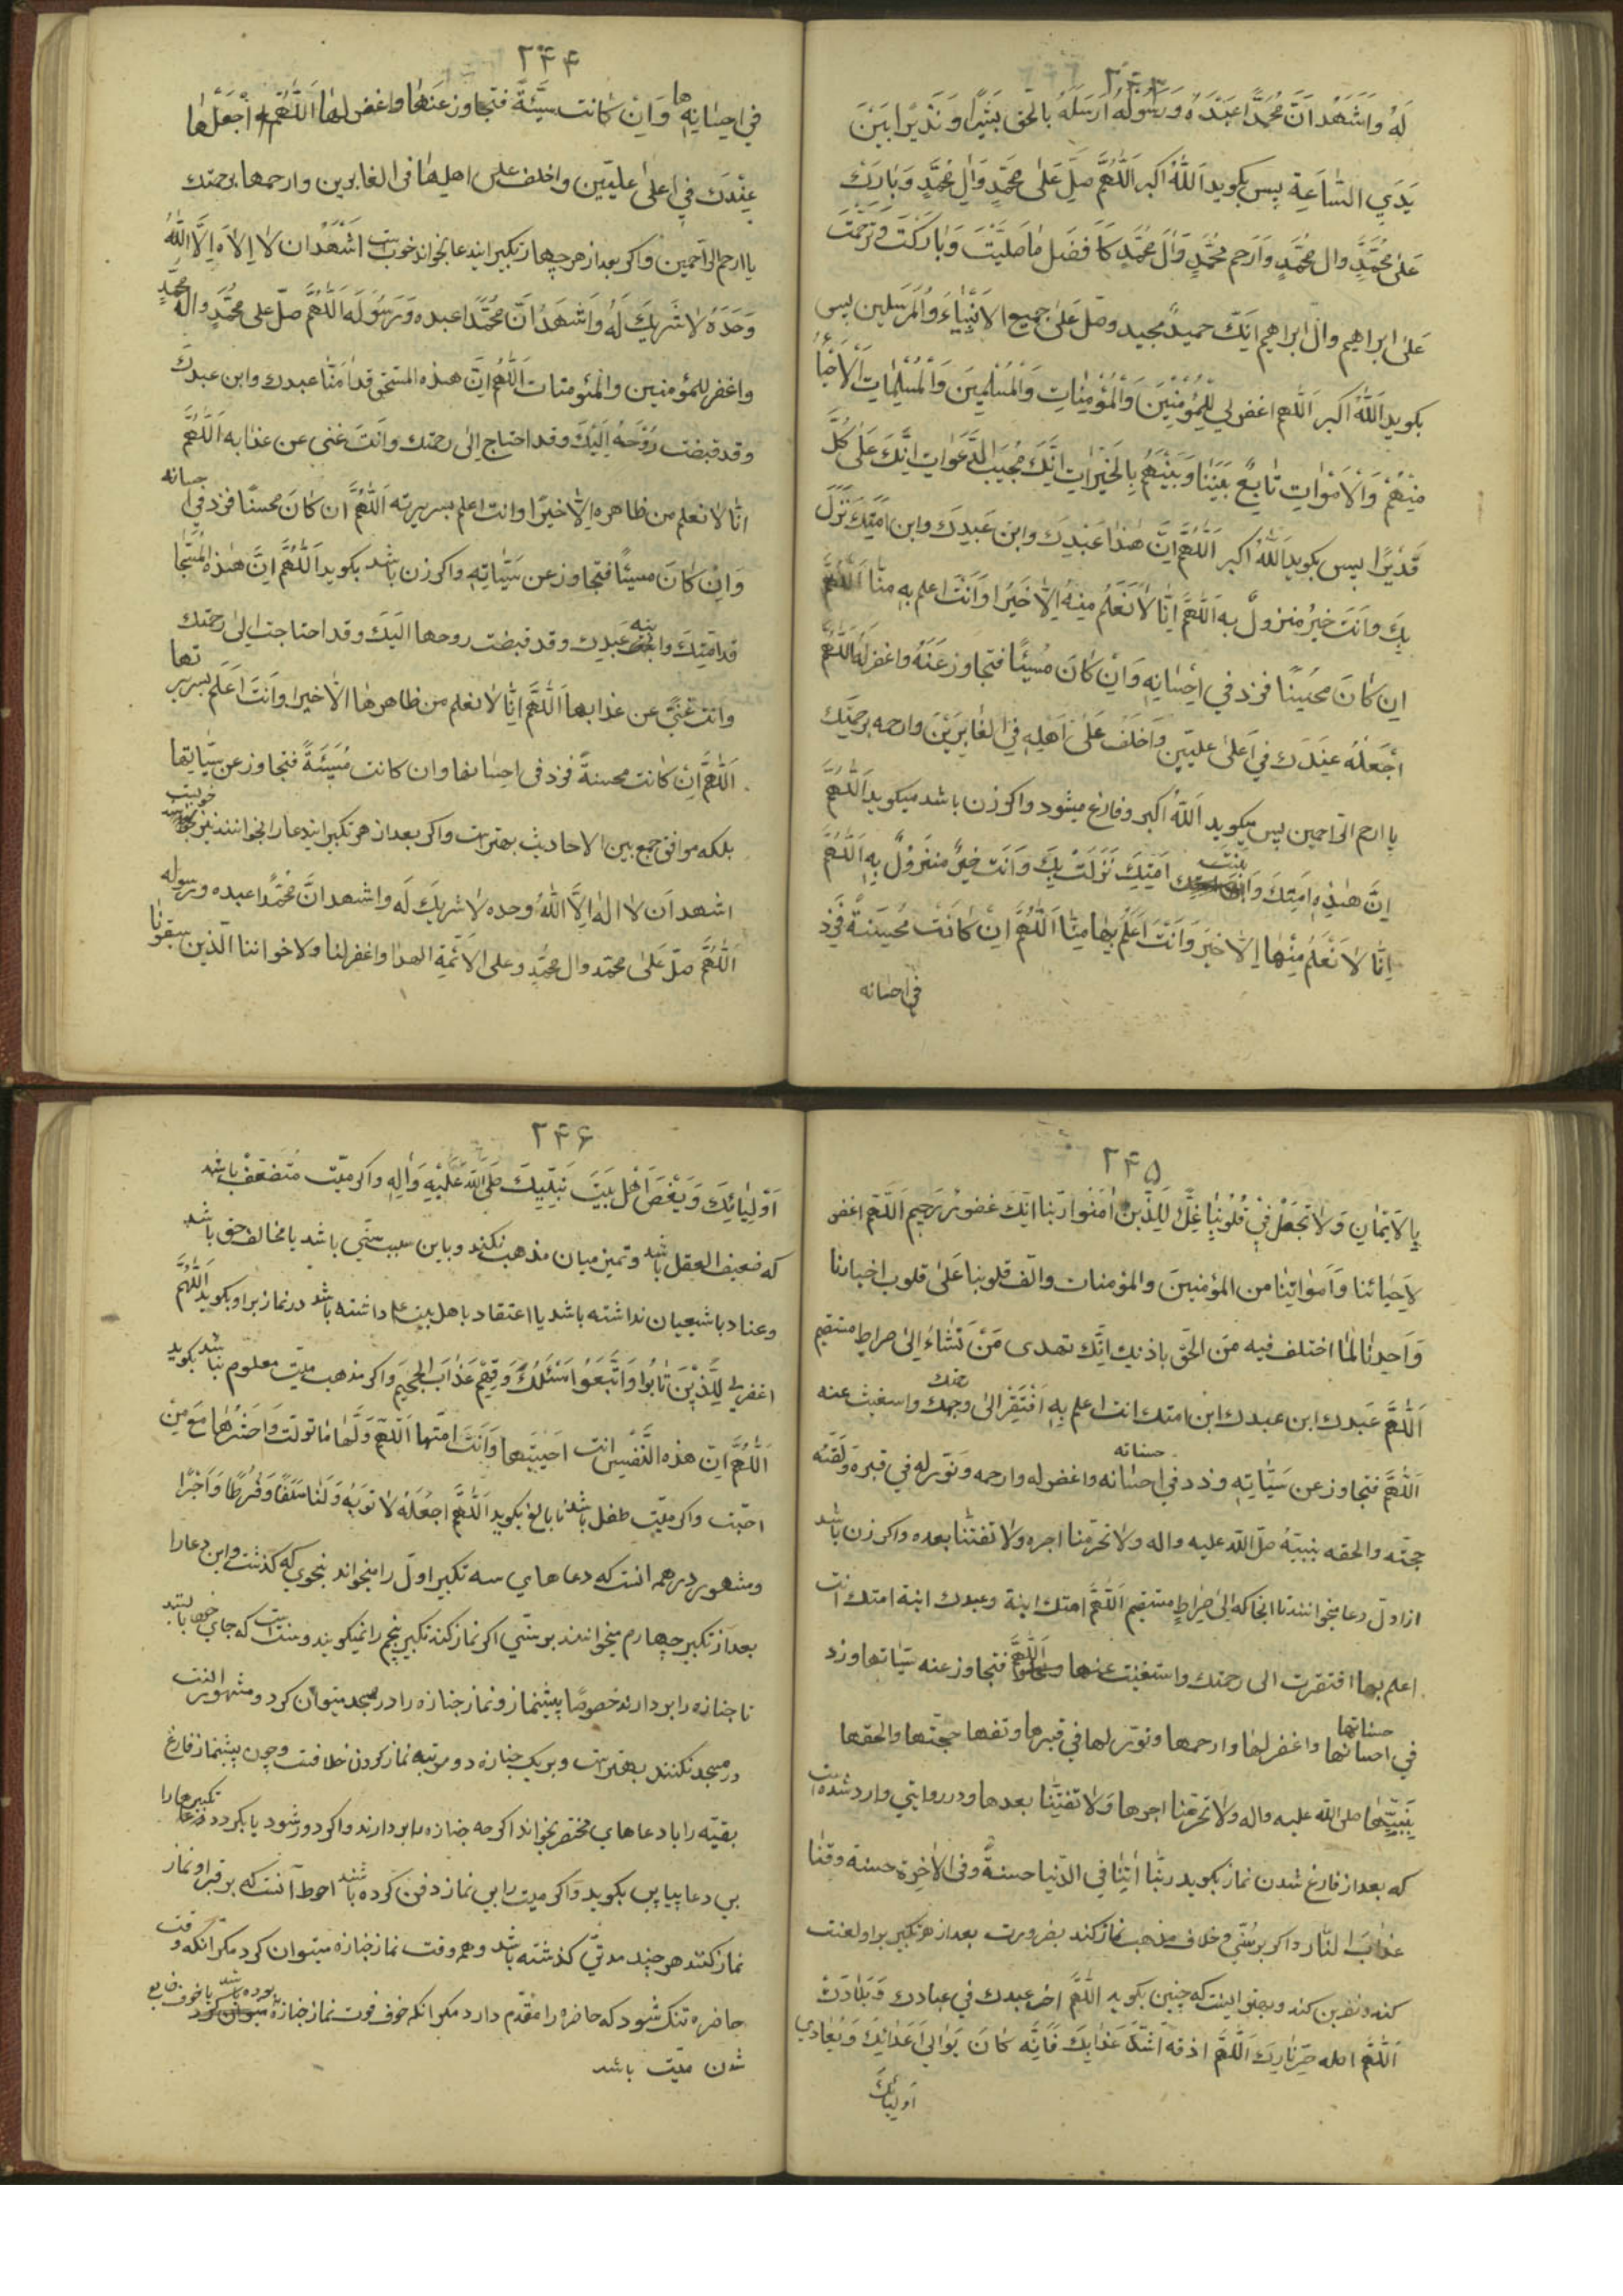 ۲۴۳
لَهُ وَاَشْهَدُ اَنَّ مُحَمَّدًا عَبْدُهُ وَرَسُولُهُ اَرْسَلَهُ بِالْحَقِّ بَشِيرًا وَنَذِيْرًا بَيْنَ
يَدَيِ السَّاعَةِ پس بكويد اَللّٰهُ اكبر اَللّٰهُمَّ صَلِّ عَلٰى مُحَمَّدٍ وَاٰلِ مُحَمَّدٍ وَبَارِكْ
عَلٰى مُحَمَّدٍ وال مُحَمَّدٍ وَارْحَمْ مُحَمَّدٍ وَاٰلَ مُحَمَّدٍ كَاَفْضَلِ مٰا صَلَّيْتَ وَبَارَكْتَ وَتَرَحَّمْتَ
عَلٰى ابراهيم وال ابراهيم اِنَّكَ حميدٌ مجيد وصلّ عَلٰى جميع الاَنْبِيٰاءِ وَالْمُرْسَلين پس
بكويد اَللّٰهُ اكبر اَللّٰهم اغفر لي لِلْمُؤْمِنِيْنَ وَالْمُؤْمِنٰاتِ وَالْمُسْلِمِيْنَ وَالْمُسْلِمٰاتِ اَلْاَحْيٰاءِ
مِنْهُمْ وَالْاَمْوٰاتِ تٰابِعْ بَيْنَنٰا وَبَيْنَهُمْ بِالْخَيْرٰاتِ اِنَّكَ مُجِيْبُ الدَّعَوٰاتِ اِنَّكَ عَلٰى كُلِّ
قَدْيرًا پس بكويد اَللّٰهُ اكبر اَللّٰهُمَّ اِنَّ هٰذٰا عَبْدِكَ وابن عَبِدِكَ وابن اَمَتِكَ نَزَلَ
بِكَ وَاَنْتَ خَيرُ مَنزولٌ به اَللّٰهُمَّ اِنّٰا لاٰ نَعْلَمُ مِنْهُ اِلاّٰ خَيْرًا وَاَنْتَ اعلم بِهِ منّٰا اَللّٰهُمَّ
اِن كٰانَ مُحْسِنًا فزد في اِحْسٰانِهِ وَاِنْ كٰانَ مُسِيْئًا فتجاوز عَنْهُ واغفر لَهُ اَللّٰهُمَّ
اجْعَلْهُ عِنْدَكَ في اَعْلٰى عليّين وَاخْلُفْ عَلٰى اَهْلِهِ في الغٰابِرِيْنَ وارحمه برحمتك
يا ارحم الرّاحمين پس ميكويد اَللّٰهُ اكبر وفارغ ميشود واكر زن باشد ميكويد اَللّٰهُمَّ
بنت
اِنَّ هٰذِهِ اَمَتِكَ وَ اَمَتِكَ نَزَلَتْ بِكَ وَاَنْتَ خَيْرُ مَنْزُولٌ بِهِ اَللّٰهُمَّ
اِنّٰا لاٰ نَعْلَمُ مِنْهٰا اِلاّٰ خَيْرَ وَاَنْتَ اَعْلَمُ بِهٰا مِنّٰا اَللّٰهُمَّ اِنْ كٰانَتْ مُحْسِنَةً فَزِدْ
في احسانه
۲۴۴
ها
في احسٰانِهِ وَاِنْ كٰانت سَيِّئَةً فتجاوز عنهٰا واغفر لهٰا اَللّٰهُمَّ اجْعَلْهٰا
عِنْدَكَ في اعلٰى عليّين واخلف على اهلِهٰا فى الغابرين وارحمها برحمتك
يا ارحم الراحمين واكر بعد از هر چهار تكبير ايندعا بخواند خوبست اَشْهَدُ ان لاٰ اِلاٰه اِلاَّ اللّٰهُ
وَحْدَهُ لاٰ شَرِيكَ لَهُ وَاَشْهَدُ اَنَّ مُحَمَّدًا عبده وَرَسُولَه اَللّٰهُمَّ صلّ على مُحَمَّدٍ وال محمدٍ
واغفر للمؤمنين والمؤمنات اَللّٰهُم انّ هذه المستحق قدامنّا عبدك وابن عبدك
وقد قبضت رُوْحَهُ اِلَيْكَ وقد احتاج اِلٰى رحمتك وانت غنى عن عذابه اَللّٰهُمَّ
انّٰا لاٰ نعلم من ظاهره اِلاّٰ خيرًا وانت اعلم بسريرته اَللّٰهُمَّ ان كٰانَ محسنًا فزد في حسانه
وَاِنْ كٰانَ مسيئًا فتجاوز عن سَيِّئٰاتِهِ واكر زن باشد بكويد اَللّٰهُمَّ اِنَّ هٰذِهِ
قد امَتِكَ وا عَبدِك وقد قبضت روحها اليَكَ وقد احتاجت الى رحمتك
وانت غنيّ عن عذابها اَللّٰهُمَّ اِنّٰا لاٰ نعلم من ظاهرهٰا الاّٰ خيرا وَاَنْتَ اَعْلَم بسرير تها
اَللّٰهُمَّ اِنْ كٰانت محسنةً فزد فى احسانها وان كانت مُسِيْئَةً فتجاوز عن سيّئٰاتِها
بلكه موافق جمع بين الاحاديث بهتر است واكر بعد از هر تكبير ايندعا را بخوانند نيز خوبست
اشهد اَن لا اله اِلاَّ اللّٰهُ وحده لاٰ شريكَ لَه واشهد انَّ مُحَمَّدًا عبده ورسوله
اَللّٰهُمَّ صلّ عَلٰى محمّد وال محمّدٍ وعلى الائمّة الهدا واغفر لنا ولاخواننا الّذين سبقونا
۲۴۵
بِالاِيْمٰانِ وَلاٰ تَجْعَلْ فِيْ قُلُوْبِنٰا غِلّٰ لِلَّذِيْنَ اٰمَنُوا رَبَّنٰا اِنَّكَ غَفُورٌ رَحِيم اَللّٰهُمَّ اغفر
لاِحيٰائنا وَاَمْوٰاتِنٰا من المؤمنينَ والمؤمنات والّف قلوبنا عَلٰى قلوب اخيارنا
وَاهدنٰا لِمٰا اختلف فيه مِن الحقّ باذنِك اِنَّكَ تهدى مَنْ تَشٰاءُ اِلىٰ صراط مستقيم
رحمتك
اَللّٰهُمَّ عَبدك ابن عبدك ابن امتك انت اعلم بِهِ اِفْتَقَر الىٰ وجهك واسغيث عنه
حسناته
اَللّٰهُمَّ فتجاوز عن سَيّئٰاتِهِ وزد في احسٰانه واغفر له وارحمه ونوّر له في قبره ولقّنه
حجّته والحقه بنبيّه صلّى اللّه عليه واله ولا تحرّمنا اجره ولا تفتنّا بعده واكر زن باشد
از اوّل دعا ميخوانند تا انجا كه اِلىٰ صِرٰاطٍ مستقيم اَللّٰهُمَّ امتك ابنة وعبدك ابنة امتك انت
اعلم بها افتقرت الى رحمتك واستغنت عنها اللّٰهُمَّ فتجاوز عنه سيّئاتها وزد
حسناتها
في احسانها واغفر لهٰا وارحمها ونوّر لها في قبرها وتفها حجّتها والحقها
بِنَبِيِّهٰا صلى اللّٰه عليه واله ولاٰ تحرّمنا اجرها وَلاٰ تفتنّٰا بعدها ودر روايتي وارد شده است
كه بعد از فارغ شدن نماز بكويد ربّنٰا اٰتِنٰا في الدّنيا حسنةً وفى الاٰخِرة حسنة وقنٰا
عذاب النّار واكر بر سُنّي وخلاف مذهب نماز كند بضرورت بعد از هر تكبير بر او لعنت
كند ونفرين كند وبهتر اينست كه چنين بكويد اَللّٰهُمَّ اخز عبدك في عبادك وَبَلاٰدَكَ
اَللّٰهُمَّ اصله حرّ نارِك اَللّٰهُمَّ اذقه اَشَدَّ عَذٰابِكَ فَاِنَّه كٰانَ يَوٰالِي اَعْدٰائِكَ وَيُعٰادِي
اَوليٰائِكَ
۲۴۶
اَوْلِيٰائِكَ وَيَبْغَضَ اَهْلَ بَيْتَ نَبِيِّكَ صَلَّى اللّٰهُ عَلَيْهِ وَاٰلِهِ واكر ميّت مُتَضَعّفْ باشد
كه ضعيف العقل باشد وتميز ميان مذهب نكند وباين سبب سنّي باشد يا مخالف حق باشد
وعناد با شيعيان نداشته باشد يا اعتقاد باهل بيت ع داشته باشد در نماز بر او بكويد اَللّٰهُمَّ
اغفر لي لِلَّذِيْنَ تٰابُوا وَاتَّبَعُوا سَبِيْلَكَ وَقِهِمْ عَذٰابَ الْجَحِيْمِ واكر مذهب ميّت معلوم نباشد بكويد
اَللّٰهُمَّ اِنّ هذه النَّفْسِ انت احييتها وَاَنْتَ امتّها اَللّٰهُمَّ وَلِّهٰا مٰا تولّت وَاحْشُرْهٰا مَعَ مَنْ
احبّت واكر ميّت طفل باشد نا بالغ بكويد اَللّٰهُمَّ اجْعَلْهُ لاَبَوَيْهِ وَلَنٰا سَلَفًا وَفُرطًا وَاَجْرًا
ومشهور در همه انست كه دعاهاي سه تكبير اوّل را ميخواند بنحوي كه كذشت واين دعا را
بعد از تكبير چهارم ميخوانند بر سنّي اكر نماز كند تكبير پنجم را نميكويند وسنّت است كه جاي خود باشند
تا جنازه را بردارند خصوصًا پيشنماز ونماز جنازه را در مسجد ميتوان كرد ومشهور انست
در مسجد نكنند بهتر است وبر يك جنازه دو مرتبه نماز كردن خلافست وچون پيشنماز فارغ
تكبيرها را
بقيّه را با دعاهاي مختصر بخواند اكرچه جنازه را بردارند واكر دور شود يا بكردد
بي دعا پياپي بكويد واكر ميت را بي نماز دفن كرده باشند احوط آنست كه بر قبر او نماز
نماز كنند هر چند مدتيّ كذشته باشد وهر وقت نماز جنازه ميتوان كرد مكر انكه وقت
حاضره تنك شود كه حاضره را مقدّم دارد مكر انكه خوف فوت نماز جنازه بوده باشد يا خوف ضايع
شدن ميّت باشد